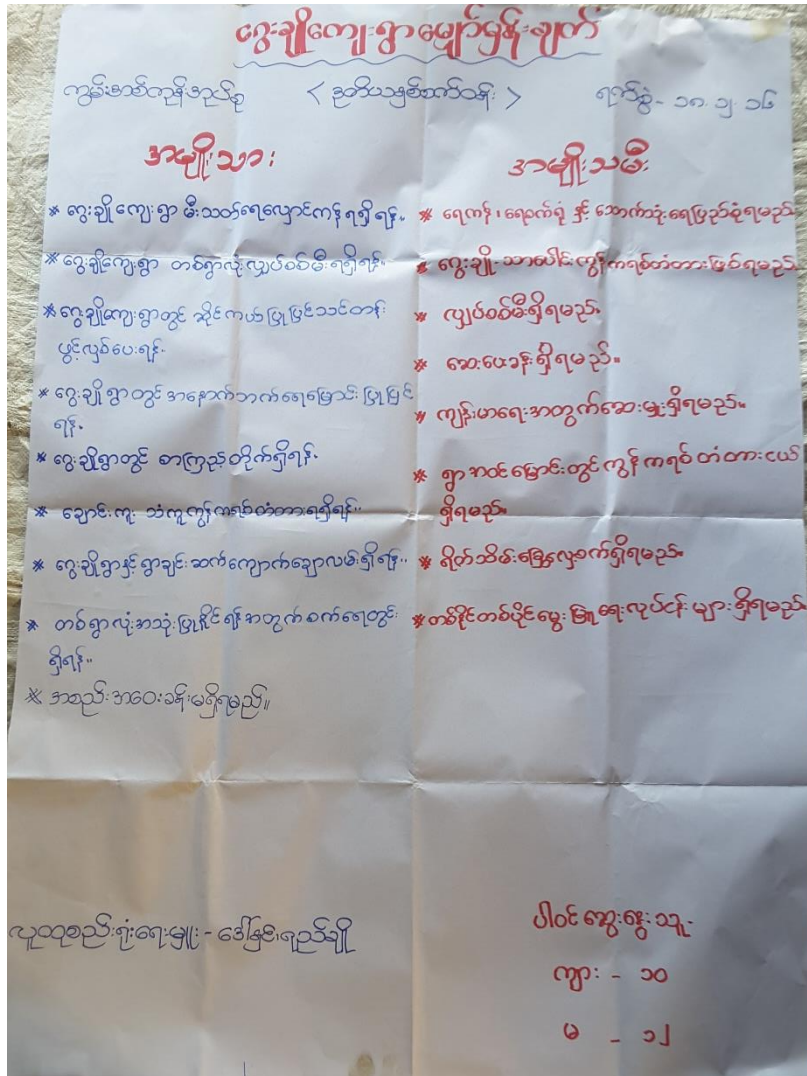 ငွေးချိုကျေးရွာမျှော်မှန်းချက်
ကွမ်းခြံကုန်းအုပ်စု < ဒုတိယနှစ်သက်တမ်း > ရက်စွဲ - ၁၈.၁၂.၁၆
အမျိုးသား
* ငွေးချိုကျေးရွာ မီးသတ်ရေလှောင်ကန်ရရှိရန်။
* ငွေးချိုကျေးရွာ တစ်ရွာလုံးလျှပ်စစ်မီးရရှိရန်။
* ငွေးချိုကျေးရွာတွင် ဆိုင်ကယ်ပြုပြင်သင်တန်း
ဖွင့်လှစ်ပေးရန်။
* ငွေးချိုရွာတွင် အနောက်ဘက်ရေမြောင်းပြုပြင်
ရန်။
* ငွေးချိုရွာတွင် စာကြည့်တိုက်ရှိရန်။
* ချောင်းကူး သံကူကွန်ကရစ်တံတားရရှိရန်။
* ငွေးချိုရွာနှင့်ရွာချင်းဆက်ကျောက်ချောလမ်းရှိရန်။
* တစ်ရွာလုံးအသုံးပြုနိုင်ရန်အတွက်စက်ရေတွင်း
ရှိရန်။
* အစည်းအဝေးခန်းမရှိရမည်။
အမျိုးသမီး
* ရေကန်၊ ရေစက်ရုံ နှင့် သောက်သုံးရေပြည့်စုံရမည်။
* ငွေးချို-သာပေါင်းကွန်ကရစ်တံတားဖြစ်ရမည်။
* လျှပ်စစ်မီးရှိရမည်။
* ဆေးပေးခန်းရှိရမည်။
* ကျန်းမာရေးအတွက်ဆေးမှူးရှိရမည်။
* ရွာအဝင်မြောင်းတွင်ကွန်ကရစ်တံတားငယ်
ရှိရမည်။
* ရိတ်သိမ်းခြွေလှေ့စက်ရှိရမည်။
* တစ်နိုင်တစ်ပိုင်မွေးမြူရေးလုပ်ငန်းများရှိရမည်။
လူထုစည်းရုံးရေးမှူး - ဒေါ်နှင်းရည်ချို
ပါဝင်ဆွေးနွေးသူ-
ကျား - ၁၀
မ - ၁၂